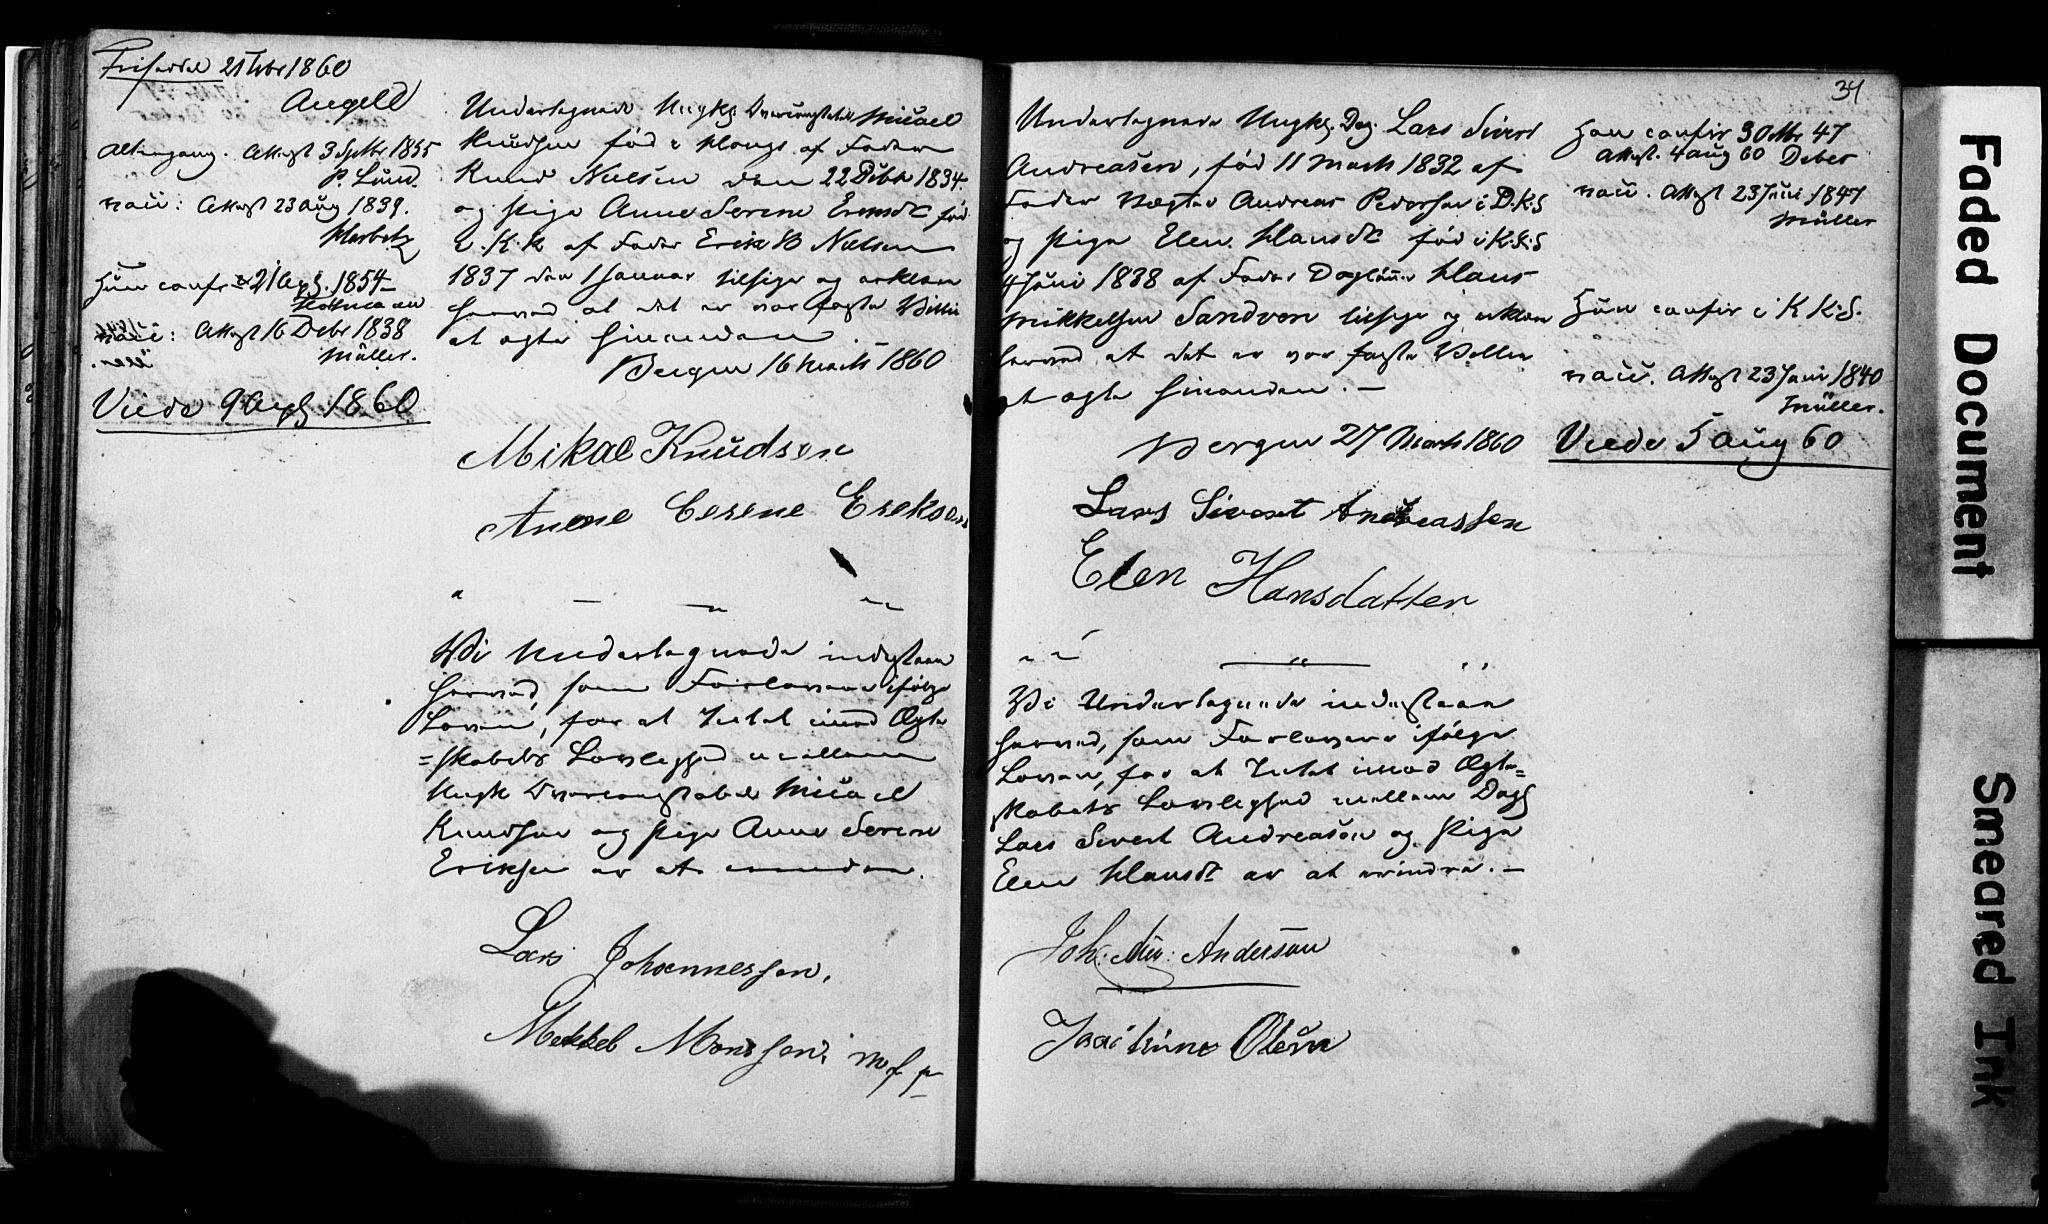 21 Febr 1860
Angell
Altergang. Attest 3 Septbr 1855
P. Lund.
vacc: Attest 23 Aug 1839.
Hun confr 21 Apr. 1854
vacc: Attest 16 Debr 1838
Müller.
Viede 9 Apr 1860
Undertegnede Ungk. Michael
Knudsen fød i Houg af Fader
Knud Nielsen den 22 Octbr 1834
og Pige Anne Serene Eriksdt fød
i K.K. af Fader Erik B Nielsen
1837 den 1 Januar tilsiger og erklærer
herved at det er vor faste Villie
at ægte hinanden.
Bergen 16 Marts 1860
Mikal Knudsen
Anene Cerene Ereksen
Vi Undertegnede indestaae
herved, som Forlovere ifølge
Loven, for at Intet imod Ægte
=skabets Lovlighed mellem
Ungk Michael
Knudsen og Pige Anne Serene
Eriksen er at erindre.
Lars Johannessen,
Mekkel Monssen, m f p
34
Undertegnede Ungk. Dag. Lars Sivert
Andreasen, fød 11 Marts 1832 af
Fader Vægter Andreas Pedersen i D.K.S
og Pige Elen Hansdt fød i K.K.S
4 Juni 1838 af Fader Daglønner Hans
Mikkelsen Sandven tilsiger og erklærer
herved at det er vor faste Villie
at ægte hinanden. —
Bergen 27 Marts 1860
Lars Sivert Andreassen
Elen Hansdatter
Vi Undertegnede indestaae
herved, som Forlovere ifølge
Loven, for at Intet imod Ægte=
skabets Lovlighed mellem Dag
Lars Sivert Andreasen og Pige
Elen Hansdt er at erindre. —
Joh: Andersen
Olsen
Han confir 30 47
Attest. 4 Aug 60 Deber
vacc. Attest 23 Juni 1847
Müller
Hun confir i K.K.S.
vacc. Attest 23 Juni 1840
Müller.
Viede 5 Aug 60
Faded Document
Smeared Ink